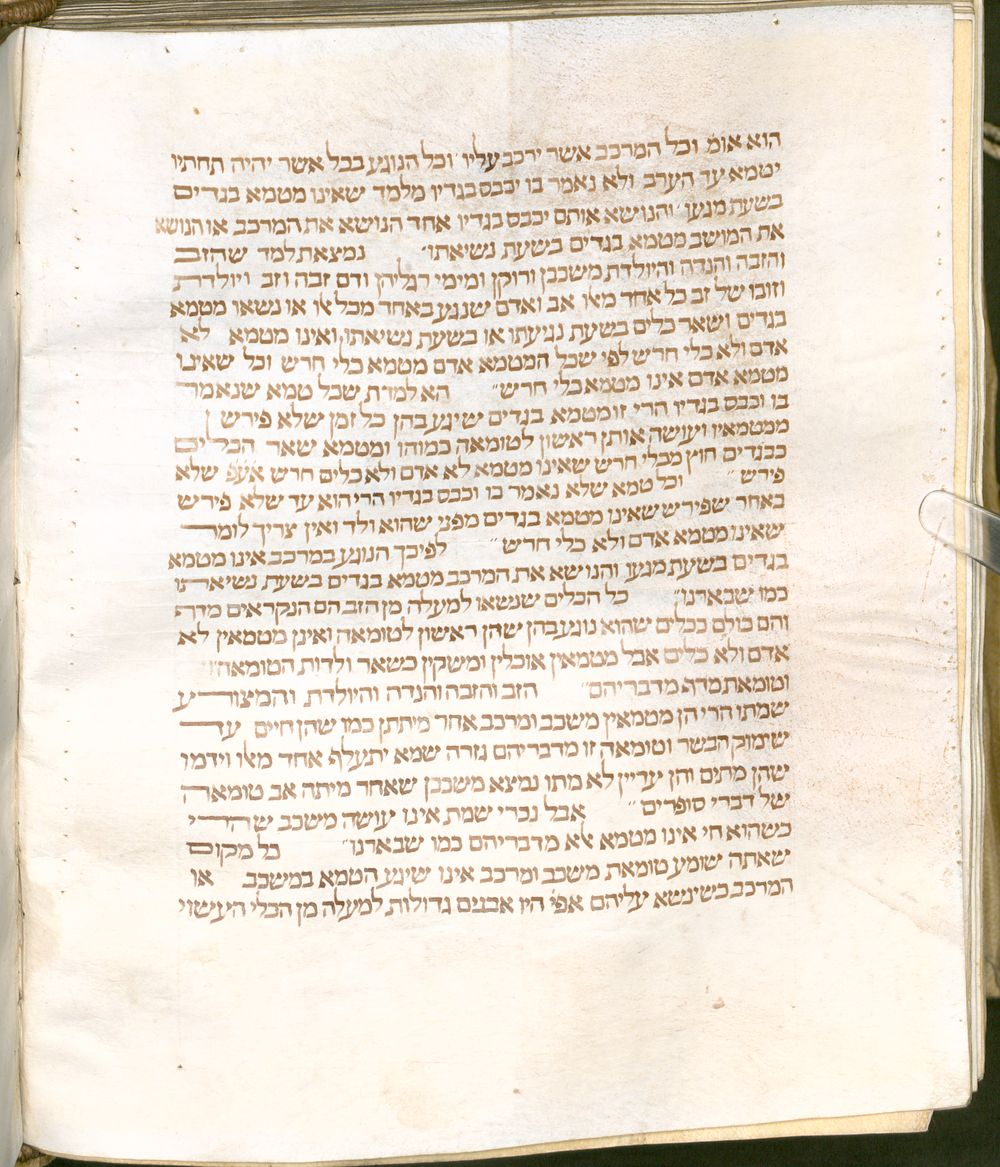 הוא אומ׳ וכל המרכב אשר ירכב עליו וכל הנוגע בכל אשר יהיה תחתיו
יטמא עד הערב ולא נאמר בו יכבס בגדיו מלמד שאינו מטמא בגדים
בשעת מגעו והנושא אותם יכבס בגדיו אחד הנושא את המרכב או הנושא
את המושב מטמא בגדים בשעת נשיאתו״ נמצאת למד שהזב
והזבה והנדה והיולדת משכבן ורוקן ומימי רגליהן ודם זבה וזב ויולדת
וזובו של זב כל אחד מאו אב ואדם שנגע באחד מכל או או נשאו מטמא
בגדים ושאר כלים בשעת נגיעתו או בשעת נשיאתו ואינו מטמא לא
אדם ולא כלי חרש לפי שכל המטמא אדם מטמא כלי חרש וכל שאינו
מטמא אדם אינו מטמא כלי חרש״ הא למדת שכל טמא שנאמר
בו וכבס בגדיו הרי זו מטמא בגדים שיגע בהן כל זמן שלא פירש
ממטמאיו ויעושה אותן ראשון לטומאה כמוהו ומטמא שאר הכלים
כבגדים חוץ מכלי חרש שאינו מטמא לא אדם ולא כלים חרש אעפ שלא
פירש״ וכל טמא שלא נאמר בו וכבס בגדיו הרי הוא עד שלא פירש
כאחר שפירש שאינו מטמא בגדים מפני שהוא ולד ואין צריך לומר
שאינו מטמא אדם ולא כלי חרש״ לפיכך הנוגע במרכב אינו מטמא
בגדים בשעת מגעו והנושא את המרכב מטמא בגדים בשעת נשיאתו
כמו שבארנו״ כל הכלים שנשאו למעלה מן הזב הם הנקראים מדף
והם כולם ככלים שהוא נוגע בהן שהן ראשון לטומאה ואינן מטמאין לא
אדם ולא כלים אבל מטמאין אוכלין ומשקין כשאר ולדות הטומאה
וטומאת מדף מדבריהם״ הזב והזבה והנדה והיולדת והמצורע
שמתו הרי הן מטמאין משכב ומרכב אחר מיתתן כמו שהן חיים עד
שימוק הבשר וטומאה זו מדבריהם גזרה שמא יתעלף אחד מאו וידמו
שהן מתים והן עדיין לא מתו נמצא משכבן שאחד מיתה אב טומאה
של דברי סופרים״ אבל נכרי שמת אינו עושה משכב שהרי
כשהוא חי אינו מטמא אלא מדבריהם כמו שבארנו״ כל מקום
שאתה שומע טומאת משכב ומרכב אינו שיגע הטמא במשכב או
המרכב כשינשא עליהם אפי׳ היו אבנים גדולות למעלה מן הכלי העשוי